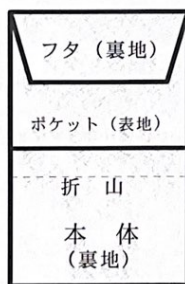 フタ（裏地）
ポケット（表地）
折山
本体
（裏地）